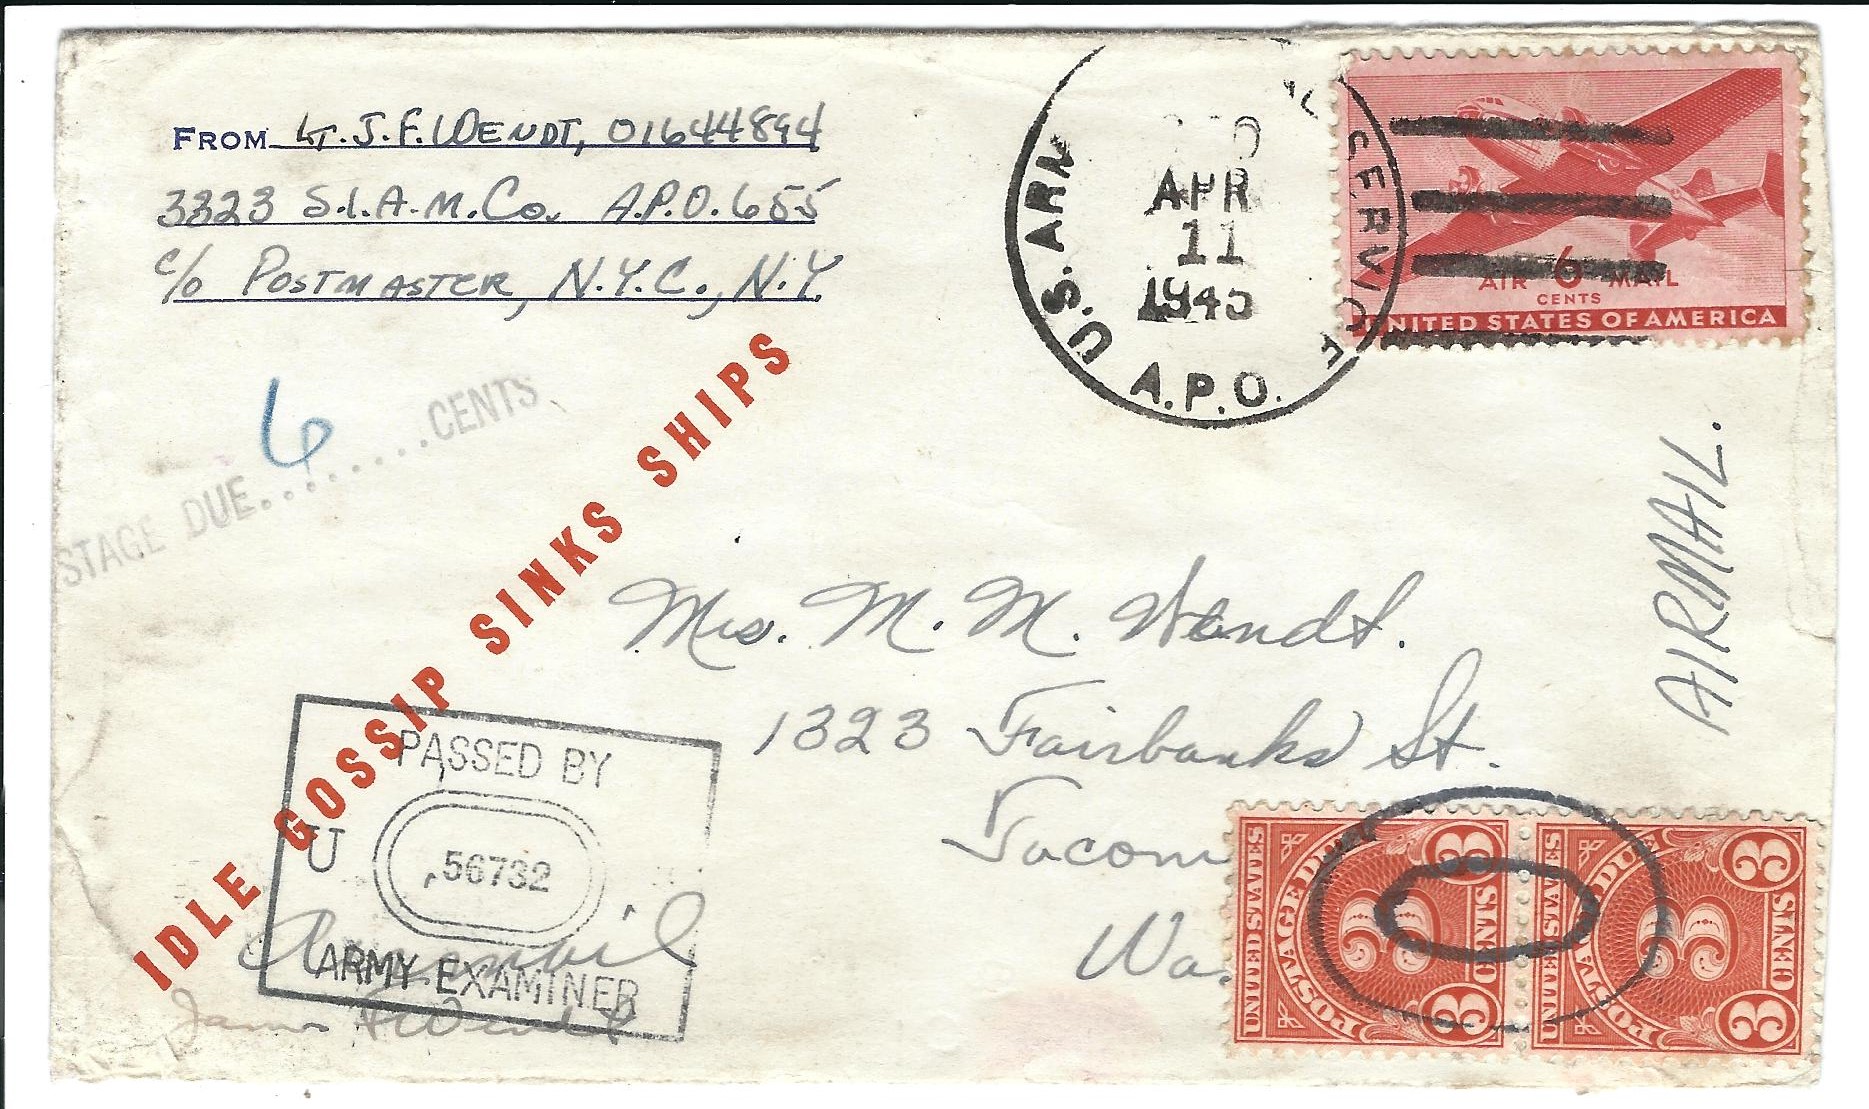 FROM LT. J. F. WENDT, 01644894
3323 S.I.A.M. Co. A.P.O. 655
c/o POSTMASTER, N.Y.C., N.Y.
U.S. ARM AL SERVICE
APR
11
1945
A.P.O.
AIR 6 MAIL
CENTS
UNITED STATES OF AMERICA
6
STAGE DUE.........CENTS
IDLE GOSSIP SINKS SHIPS
AIRMAIL.
Mrs. M. M. Wendt.
1323 Fairbanks St.
Tacom
Was
PASSED BY
U
56732
ARMY EXAMINER
James F Wendt
UNITED STATES
POSTAGE DUE
3 CENTS 3
3
UNITED STATES
POSTAGE DUE
3 CENTS 3
3